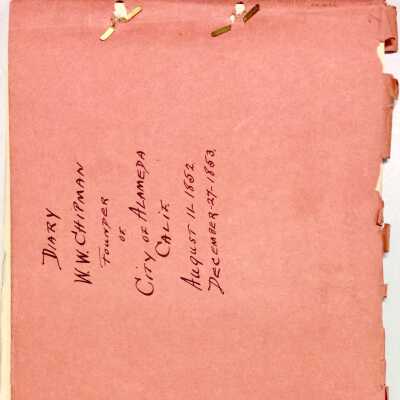 DIARY
W.W. CHIPMAN
FOUNDER
OF
CITY OF ALAMEDA
CALIF
AUGUST 11-1852
DECEMBER-27-1853.